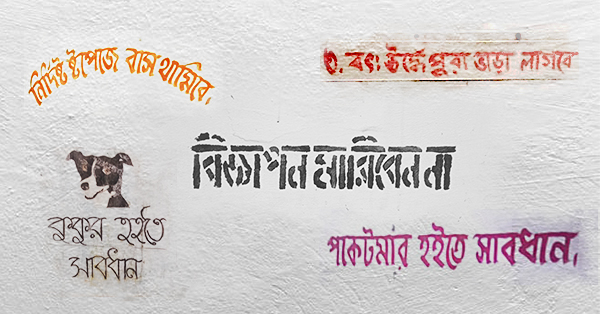 নির্দিষ্ট ষ্টপেজে বাস থামিবে.
৩. বৎ ঊর্দ্ধে পুরা ভাড়া লাগবে
বিজ্ঞাপন মারিবেন না
কুকুর হইতে
সাবধান
পকেটমার হইতে সাবধান.